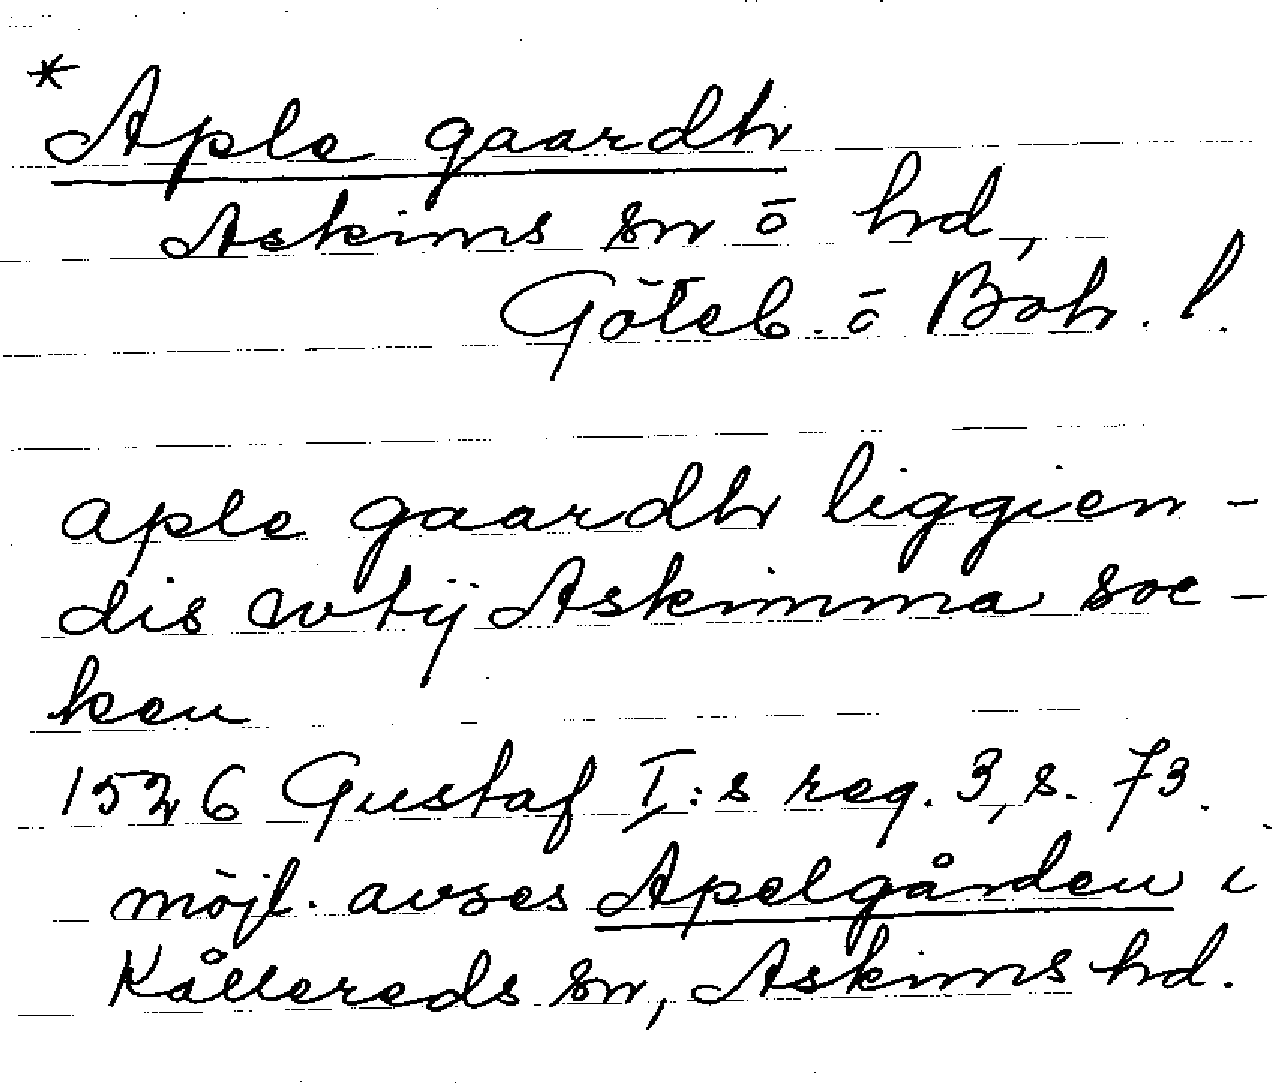 * Aple gaardh
Askims sn ō hd,
Göteb. ō Boh. l.
aple gaardh liggien-
dis wtij Askimma soc-
ken
1526 Gustaf I:s reg. 3, s. 73.
möjl. avses Apelgården i
Kållereds sn, Askims hd.